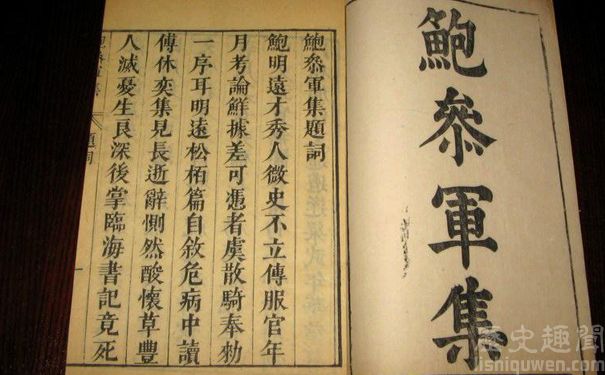 鮑叅軍集
鮑叅軍集題詞
鮑明遠才秀人微史不立傳服官年
月考論鮮據差可憑者虞散騎奉勑
一序耳明遠松栢篇自敘危病中讀
傅休奕集見長逝辭惻然酸懷草豐
人滅憂生良深後掌臨海書記竟死
題詞
歷史趣聞
lishiquwen.com